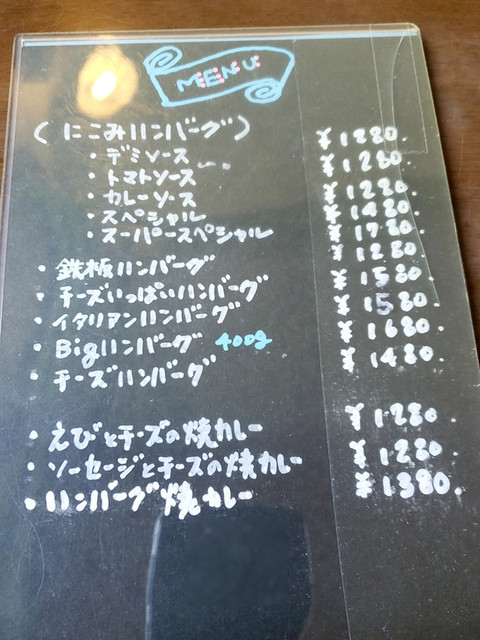 MENU
(にこみハンバーグ)
・デミソース ¥1280.
・トマトソース ¥1280.
・カレーソース ¥1280.
・スペシャル ¥1480.
・スーパースペシャル ¥1780.
・鉄板ハンバーグ ¥1280.
・チーズいっぱいハンバーグ ¥1580.
・イタリアンハンバーグ ¥1580.
・Bigハンバーグ 400g ¥1680.
・チーズハンバーグ ¥1480.
・えびとチーズの焼カレー ¥1280.
・ソーセージとチーズの焼カレー ¥1280.
・ハンバーグ焼カレー ¥1380.